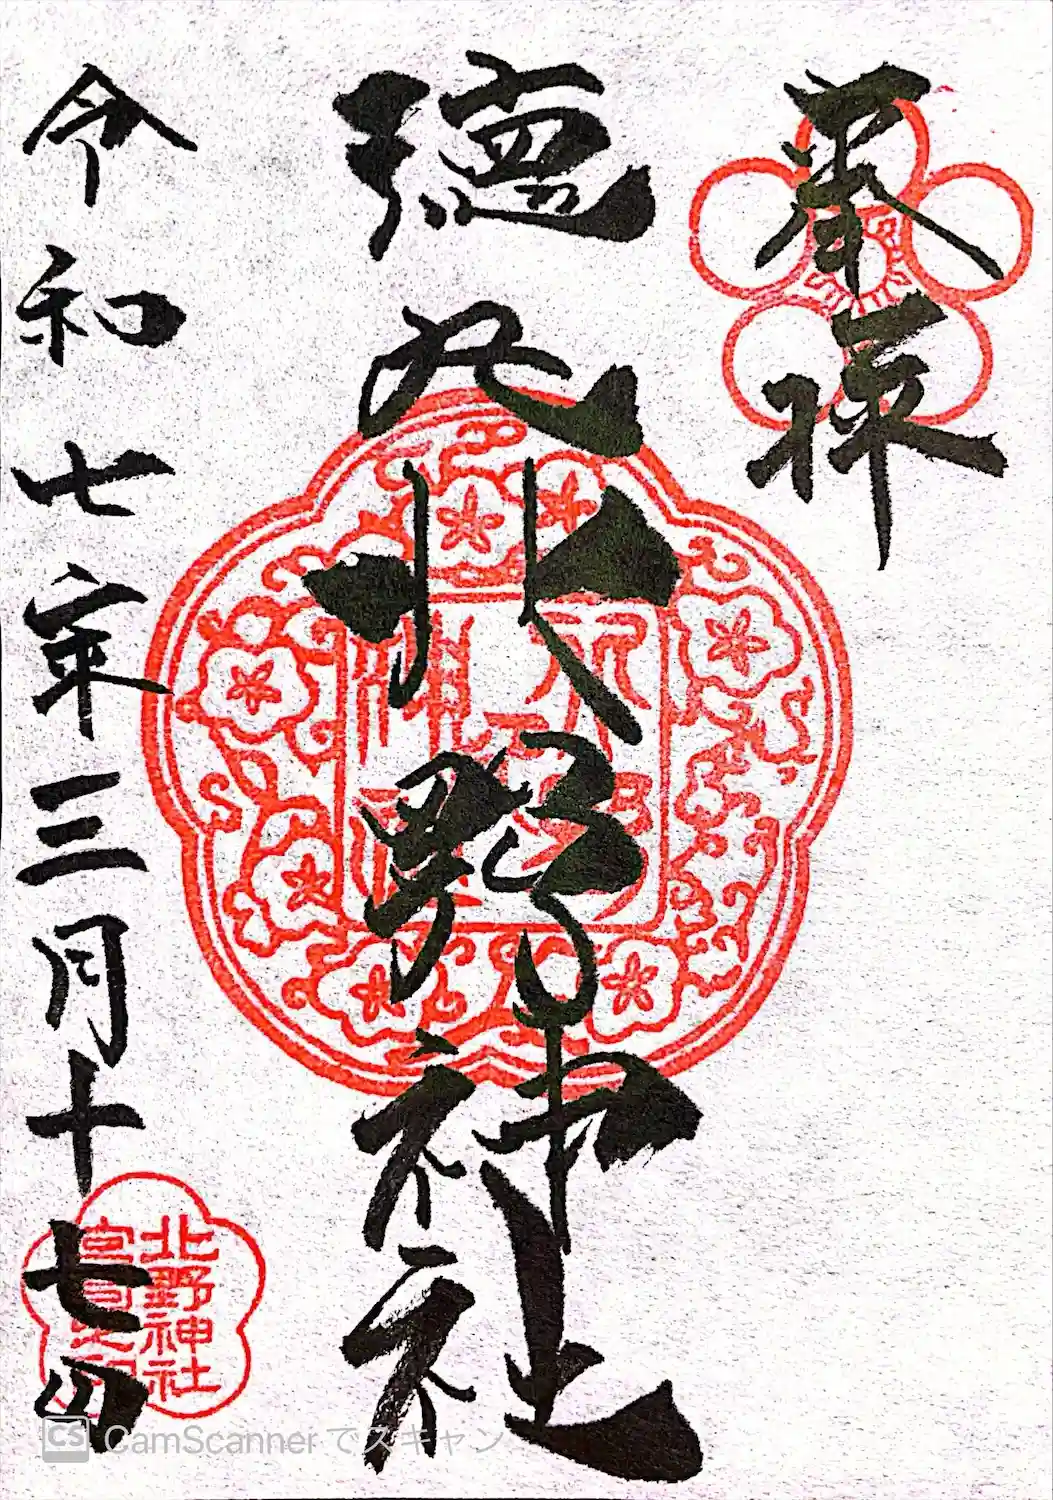 奉拝
徳丸北野神社
令和七年三月十七日
北野神社
宮司之印
CS CamScanner でスキャン